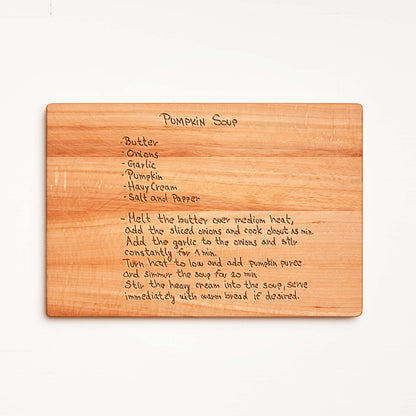 Pumpkin Soup
- Butter
- Onions
- Garlic
- Pumpkin
- Havy Cream
- Salt and Papper
- Melt the butter over medium heat,
add the sliced onions and cook about 15 min.
Add the garlic to the onions and stir
constantly for 1 min.
Turn heat to low and add pumpkin puree
and simmur the soup for 20 min
Stir the heavy cream into the soup, serve
immediately with warm bread if desired.